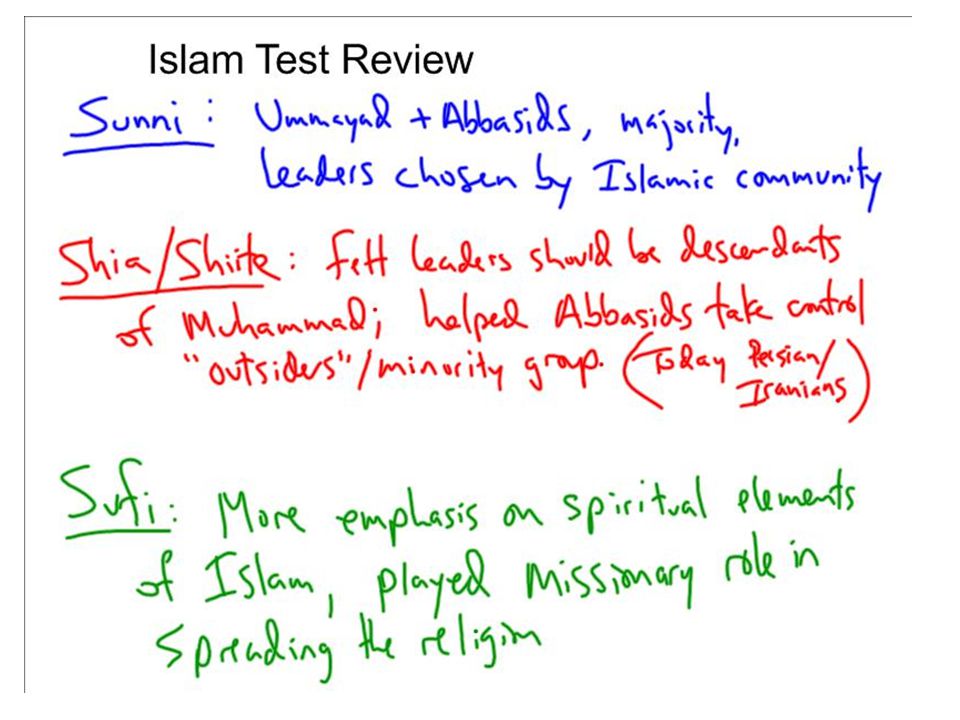 Islam Test Review
Sunni: Ummayad + Abbasids, majority,
leaders chosen by Islamic community
Shia/Shiite: felt leaders should be descendants
of Muhammad; helped Abbasids take control
"outsiders"/minority group. (Today Persian/
Iranians)
Sufi: More emphasis on spiritual elements
of Islam, played missionary role in
spreading the religion